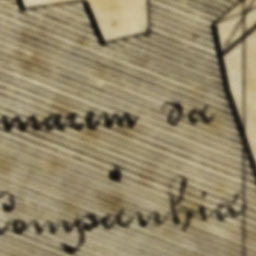 mazem da
Companhia